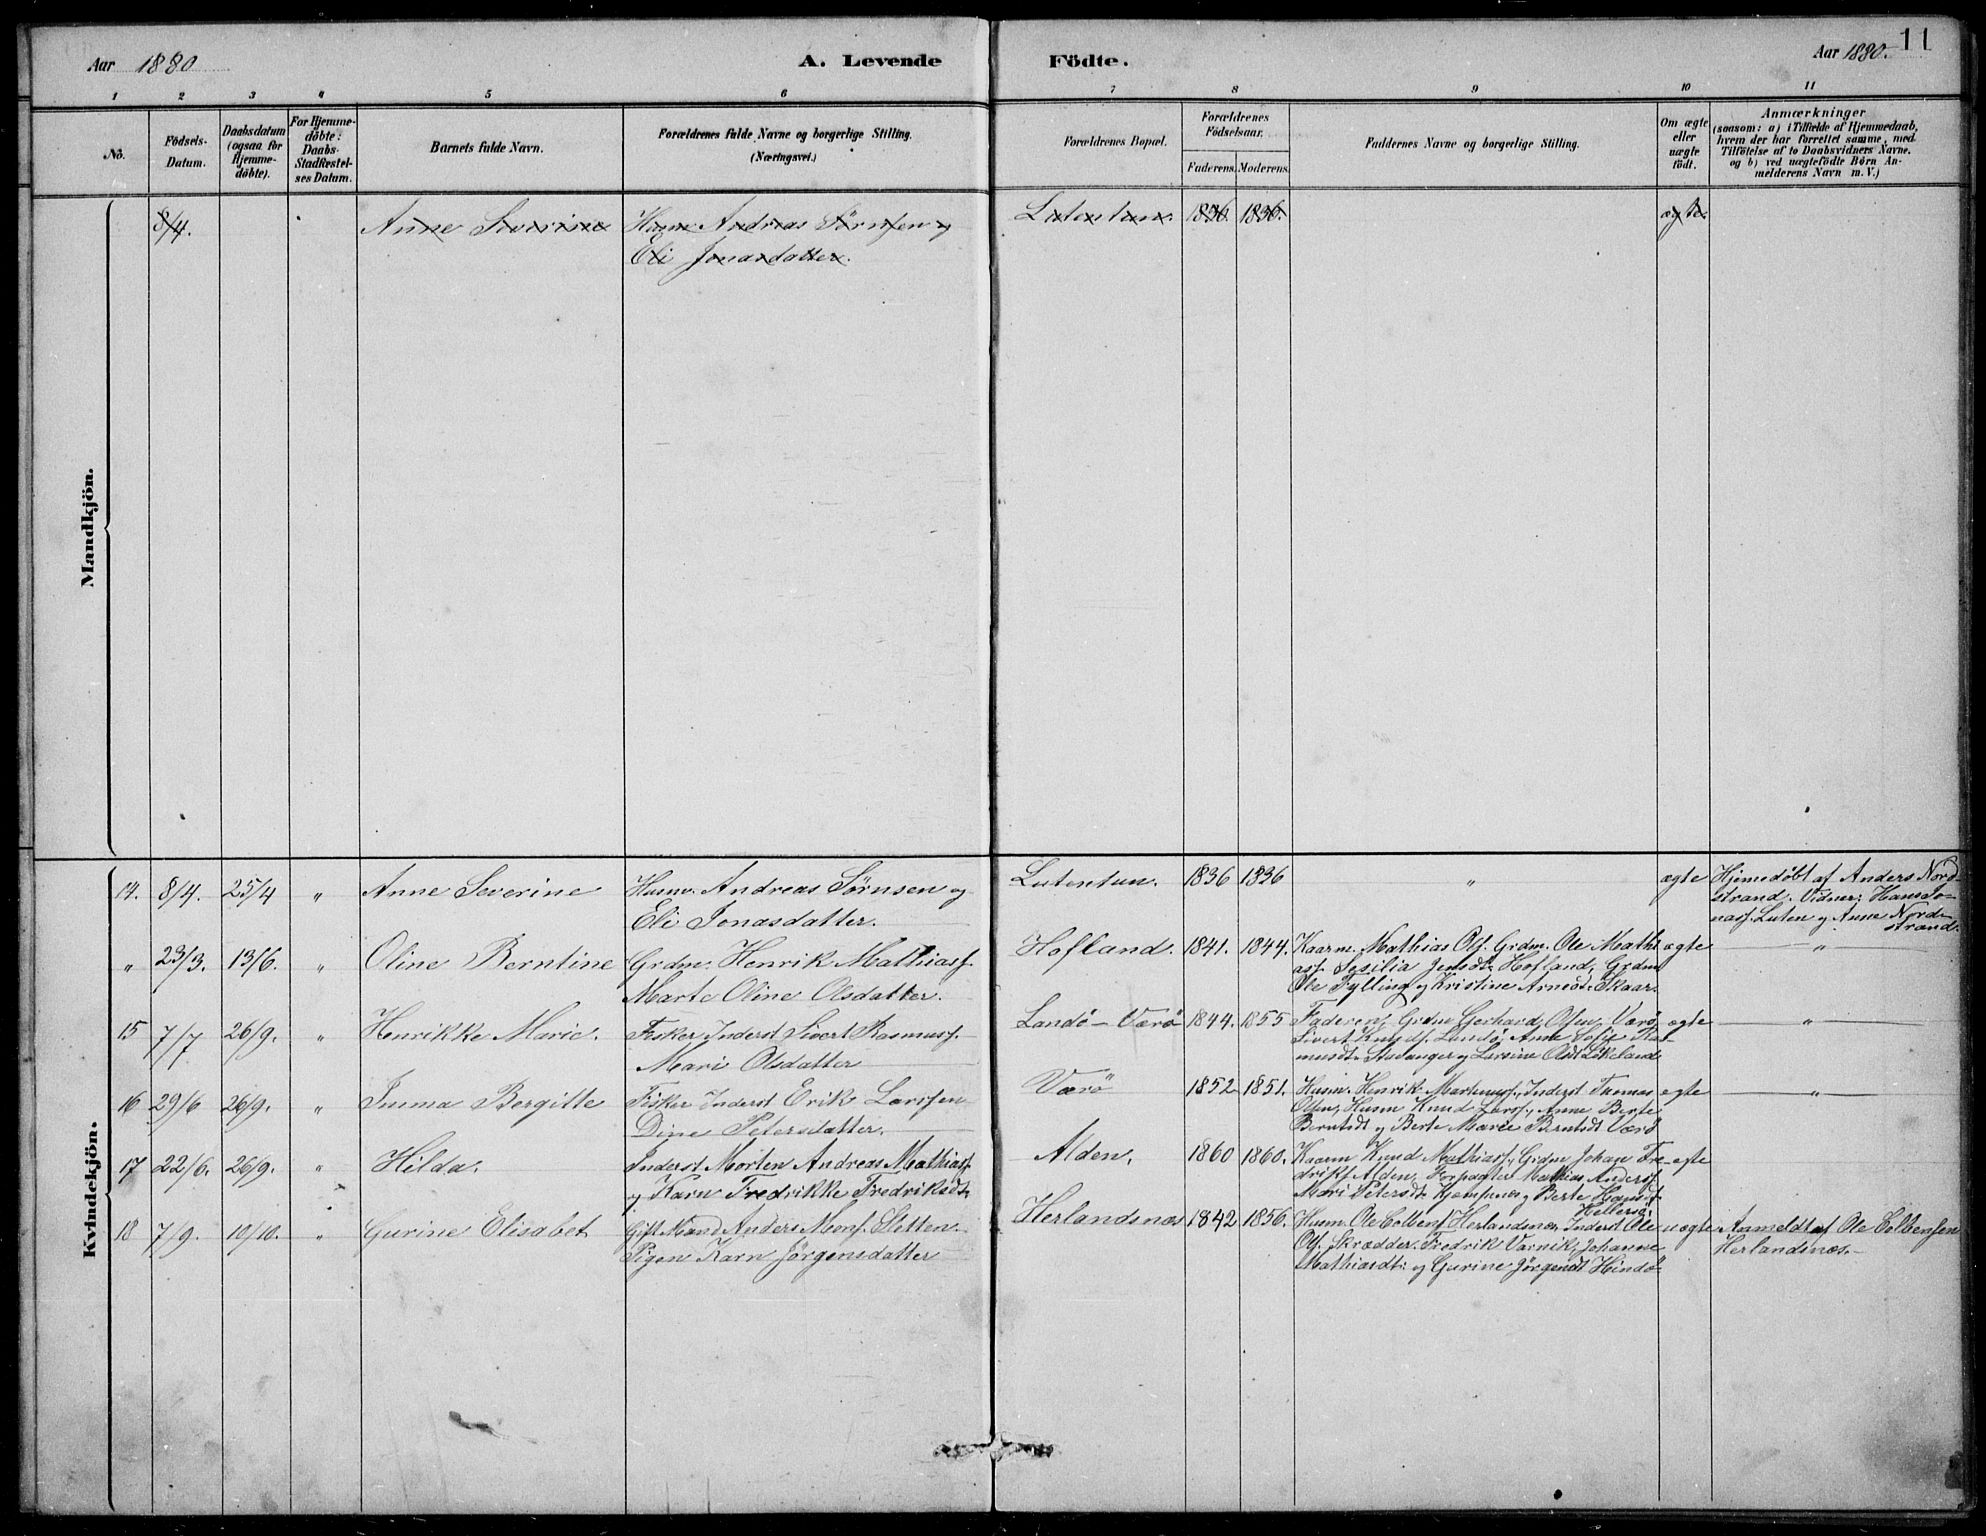 11
Aar 1880
A. Levende
Födte.
Aar 1880.
1 2 3 4 5 6 7 8 9 10 11
No.
Födsels-
Datum.
Daabsdatum
(ogsaa för
Hjemme-
döbte).
For Hjemme-
döbte:
Daabs-
Stadfæstel-
ses Datum.
Barnets fulde Navn.
Forældrenes fulde Navne og borgerlige Stilling.
(Næringsvei.)
Forældrenes Bopæl.
Forældrenes
Födselsaar.
Faderens. Moderens.
Faddernes Navne og borgerlige Stilling.
Om ægte
eller
uægte
födt.
Anmærkninger
(saasom: a) i Tilfælde af Hjemmedaab,
hvem der har forrettet samme, med
Tilföielse af to Daabsvidners Navne.
og b) ved uægtefödte Börn An-
melderens Navn m. V.)
Mandkjön.
8/4. Anne Severine Husm Andreas Sörnsen og Lutentun. 1836. 1836. ægte.
Eli Jonasdatter.
Kvindekjön.
14. 8/4. 25/4 " Anne Severine Husm. Andreas Sörnsen og Lutentun. 1836 1836 " ægte Hjemedöbt af Anders Nord-
Eli Jonasdatter. strand. Vidner: Hans Jo-
nasf. Luten og Anne Nord-
strand.
" 23/3. 13/6. " Oline Berntine Grdm. Henrik Mathiasf. Hofland. 1841. 1844. Kaarm. Mathias Olf. Grdm. Ole Mathi ægte "
Marte Oline Olsdatter. asf. Sesilia Jensdt. Hofland, Grdm
Ole Tylling og Kristine Arnesdt. Skaar.
15 7/7 26/9. " Henrikke Marie. Fisker Inderst Sivert Rasmusf. Landö - Værö 1844. 1855 Faderen, Grdm Gerhard Olsen, Værö, ægte "
Mari Olsdatter Sivert Landö, Anne Sofie Ras
musdt. Stavanger og Larsine Olsdt
16 29/6 26/9. " Bergitte Fisker Inderst Erik Larssen Værö 1852 1851. Husm. Henrik Martinusf., Inderst Tomas egte "
Dine Petersdatter. Olsen, Husm Knud Larsf., Anne Berte
Berntsdt og Berte Marie Berntsdt Værö
17 22/6. 26/9. " Hilda. Inderst Morten Andreas Mathiasf. Alden. 1860 1860. Kaarm Knud Mathiasf., Grdm Johan Fre- egte
og Karn Fredrikke Fredriksdt. driksf Alden, Forpagter Mathias Andersf.
Mari Petersdt. og Berte Hansdt
Hellersö.
18 7/9. 10/10. " Gurine Elisabet Gift Mand Anders Monsf. Sletten Herlandsnæs 1842 1856. Husm. Ole Colbenf Herlandsnæs Inderst Ole uægte Anmeldt af Ole Colbensen
Pigen Karn Jörgensdatter Olf. Skrædder Fredrik Varvik, Johanne Herlandsnæs.
Mathiasdt. og Gurine Jörgensdt Hindö